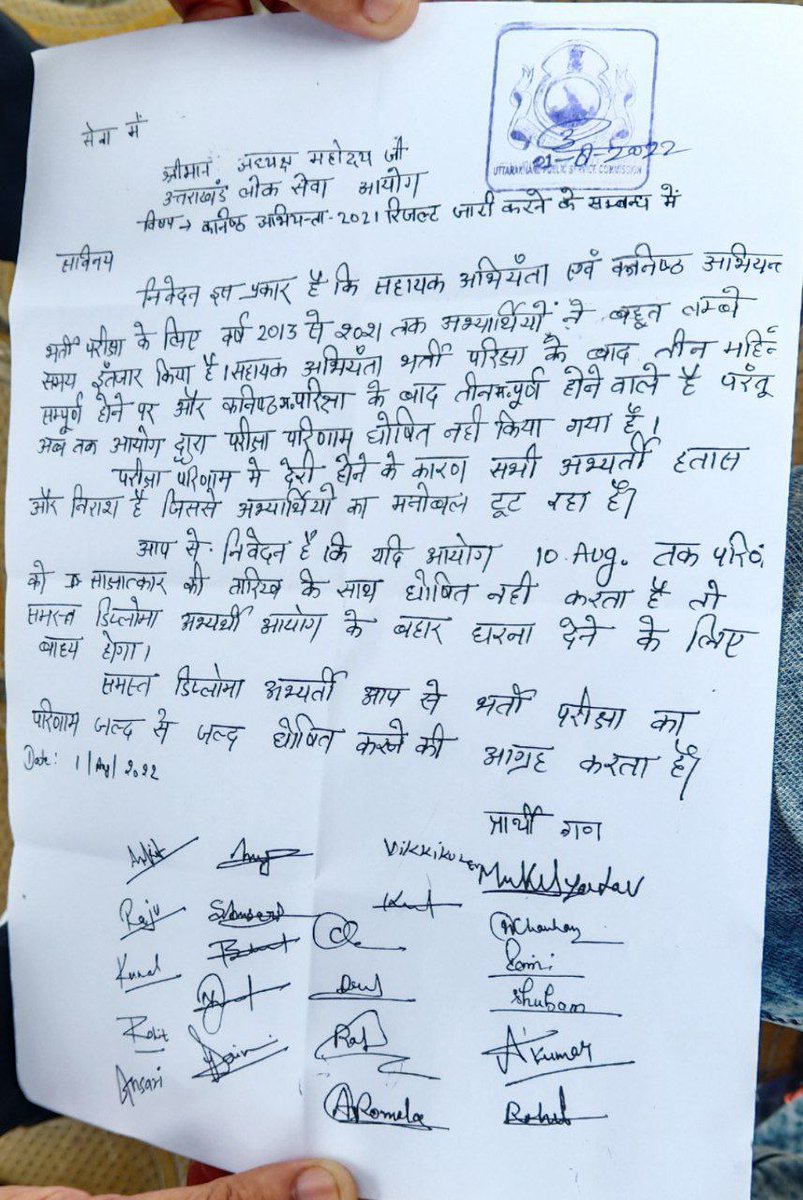 UTTARAKHAND PUBLIC SERVICE COMMISSION
01-8-2022
सेवा में
श्रीमान अध्यक्ष महोदय जी
उत्तराखंड लोक सेवा आयोग
विषय → कनिष्ठ अभियन्ता-2021 रिजल्ट जारी करने के सम्बन्ध में
सविनय
निवेदन इस प्रकार है कि सहायक अभियंता एवं कननिष्ठ अभियन्
भर्ती परीक्षा के लिए वर्ष 2013 से 2021 तक अभ्यार्थियों ने बहुत लम्बे
समय इंतजार किया है। सहायक अभियंता भर्ती परिक्षा के बाद तीन महिने
सम्पूर्ण होने पर और कनिष्ठ अ. परिक्षा के बाद तीन म. पूर्ण होने वाले है परंतू
अब तक आयोग द्वारा परीक्षा परिणाम घोषित नही किया गया है।
परीक्षा परिणाम मे देरी होने के कारण सभी अभ्यर्ती हतास
और निराश है जिससे अभ्यार्थियो का मनोबल टूट रहा है।
आप से निवेदन है कि यदि आयोग 10 Aug. तक परि०
को साक्षात्कार की तारिख के साथ घोषित नही करता है तो
समस्त डिप्लोमा अभ्यर्थी आयोग के बहार धरना देने के लिए
बाध्य होगा।
समस्त डिप्लोमा अभ्यर्ती आप से भर्ती परीक्षा का
परिणाम जल्द से जल्द घोषित करने की आग्रह करता है।
Date: 1/Aug/2022
प्रार्थी गण
Ankit Vikkikumar Mukul yadav
Raju Chauhan
Kunal Saini
Dev Shubam
Rohit Raj A'Kumar
Ansari Saini
A Romela Rahul